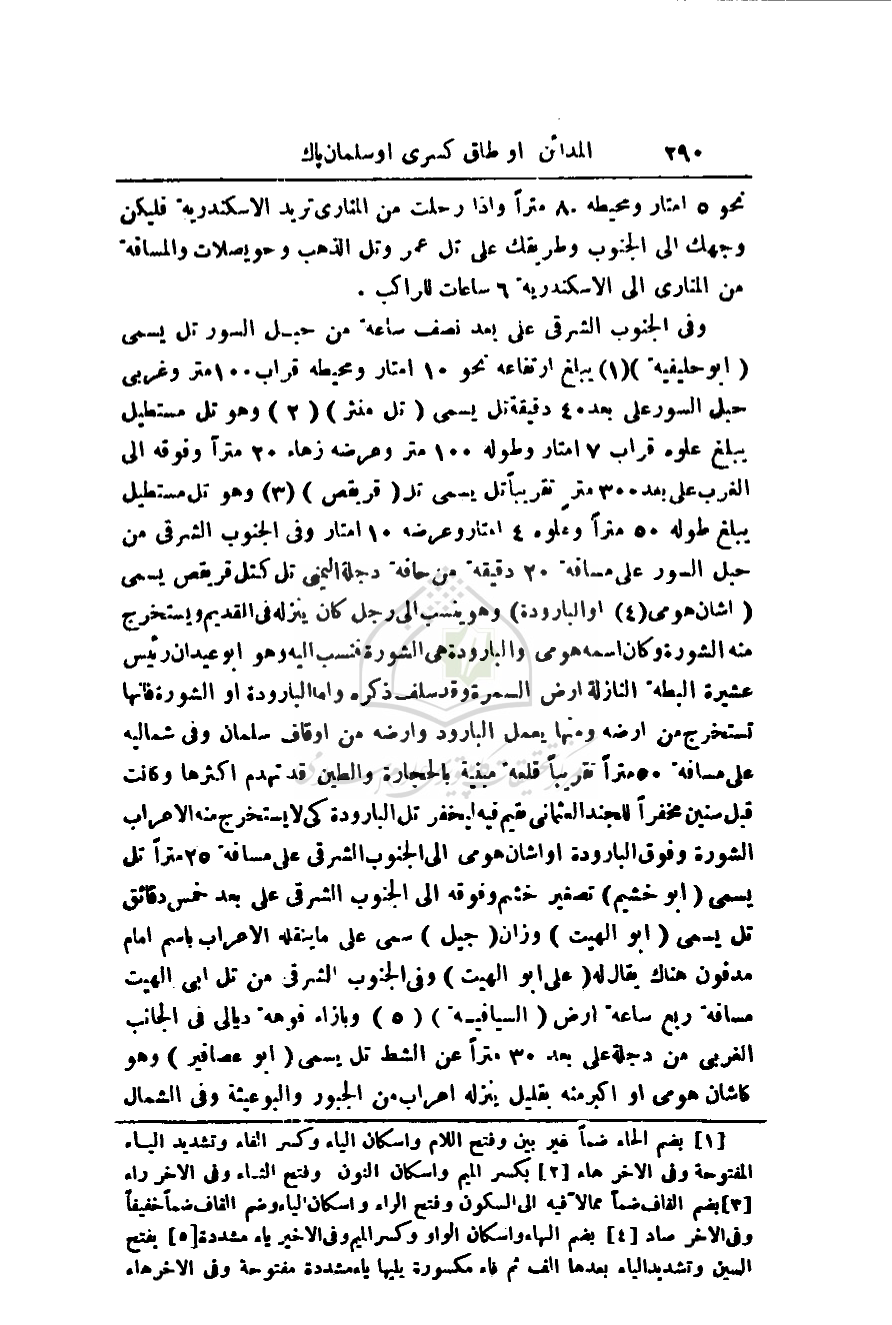 ٢٩٠ المدائن او طاق كسرى او سلمان پاك
نحو ٥ امتار ومحيطه ٨٠ متراً واذا رحلت من المنارى تريد الاسكندرية فليكن
وجهك الى الجنوب وطريقك على تل عمر وتل الذهب وحويصلات والمسافة
من المنارى الى الاسكندرية ٦ ساعات للراكب .
وفى الجنوب الشرقى على بعد نصف ساعة من حبل السور تل يسمى
( ابو حليفية )(١) يبلغ ارتفاعه نحو ١٠ امتار ومحيطه قراب ١٠٠ متر وغربى
حبل السور على بعد ٤٠ دقيقة تل يسمى ( تل منثر ) ( ٢ ) وهو تل مستطيل
يبلغ علوه قراب ٧ امتار وطوله ١٠٠ متر وعرضه زهاء ٢٠ متراً وفوقه الى
الغرب على بعد ٣٠٠ متر تقريباً تل يسمى تل ( قريقص ) (٣) وهو تل مستطيل
يبلغ طوله ٥٠ متراً وعلوه ٤ امتار وعرضه ١٠ امتار وفى الجنوب الشرقى من
حبل السور على مسافة ٢٠ دقيقة من حافة دجلة اليمنى تل كتل قريقص يسمى
( اشان هومى (٤) او البارودة) وهو ينسب الى رجل كان ينزله فى القديم ويستخرج
منه الشورة وكان اسمه هومى والبارودة هى الشورة فنسب اليه وهو ابو عيدان رئيس
عشيرة البطة النازلة ارض السمرة وقد سلف ذكره واما البارودة او الشورة فانها
تستخرج من ارضه ومنها يعمل البارود وارضه من اوقاف سلمان وفى شماليه
على مسافة ٥٠ متراً تقريباً قلعة مبنية بالحجارة والطين قد تهدم اكثرها وكانت
قبل سنين مخفراً للجند العثمانى مقيم فيه ليخفر تل البارودة كى لا يستخرج منه الاعراب
الشورة وفوق البارودة او اشان هومى الى الجنوب الشرقى على مسافة ٢٥ متراً تل
يسمى ( ابو خشيم) تصغير خشم وفوقه الى الجنوب الشرقى على بعد خمس دقائق
تل يسمى ( ابو الهيت ) وزان ( جيل ) سمى على ما ينقله الاعراب باسم امام
مدفون هناك يقال له ( على ابو الهيت ) وفى الجنوب الشرقى من تل ابى الهيت
مسافة ربع ساعة ارض ( السيافية ) ( ٥ ) وبازاء فوهة ديالى فى الجانب
الغربى من دجلة على بعد ٣٠ متراً عن الشط تل يسمى ( ابو عصافير ) وهو
كاشان هومى او اكبر منه بقليل ينزله اعراب من الجبور والبوعيثة وفى الشمال
[١] بضم الحاء ضماً غير بين وفتح اللام واسكان الياء وكسر الفاء وتشديد اليـاء
المفتوحة وفى الاخر هاء [٢] بكسر الميم واسكان النون وفتح الثـاء وفى الاخر راء
[٣] بضم القاف ضماً ممالاً فيه الى السكون وفتح الراء واسكان الياء وضم القاف ضماً خفيفاً
وفى الاخر صاد [٤] بضم الهاء واسكان الواو وكسر الميم وفى الاخير ياء مشددة [٥] بفتح
السين وتشديد الياء بعدها الف ثم فاء مكسورة يليها ياء مشددة مفتوحة وفى الاخر هاء